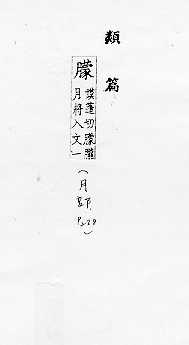 類篇
朦 謨蓬切朦朧
月將入文一
(月部 P.229)